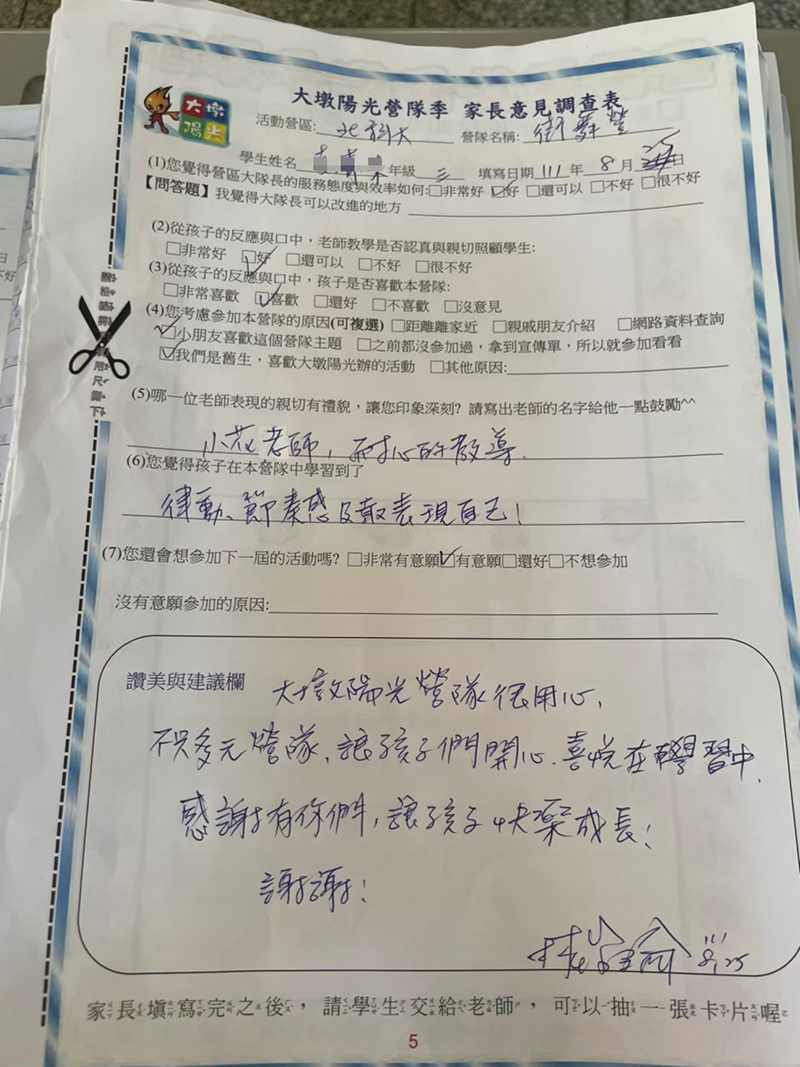 大墩
陽光
大墩陽光營隊季 家長意見調查表
活動營區: 北科大 營隊名稱: 街舞營
學生姓名 年級 三 填寫日期 111 年 8 月 25 日
(1)您覺得營區大隊長的服務態度與效率如何:□非常好 ☑好 □還可以 □不好 □很不好
【問答題】我覺得大隊長可以改進的地方
(2)從孩子的反應與口中，老師教學是否認真與親切照顧學生:
□非常好 ☑好 □還可以 □不好 □很不好
(3)從孩子的反應與口中，孩子是否喜歡本營隊:
□非常喜歡 ☑喜歡 □還好 □不喜歡 □沒意見
(4)您考慮參加本營隊的原因(可複選) □距離離家近 □親戚朋友介紹 □網路資料查詢
☑小朋友喜歡這個營隊主題 □之前都沒參加過，拿到宣傳單，所以就參加看看
☑我們是舊生，喜歡大墩陽光辦的活動 □其他原因:
(5)哪一位老師表現的親切有禮貌，讓您印象深刻? 請寫出老師的名字給他一點鼓勵^^
小花老師，耐心的教導.
(6)您覺得孩子在本營隊中學習到了
律動、節奏感及敢表現自己!
(7)您還會想參加下一屆的活動嗎? □非常有意願☑有意願□還好□不想參加
沒有意願參加的原因:
讚美與建議欄 大墩陽光營隊很用心,
不只多元營隊, 讓孩子們開心. 喜悅在學習中.
感謝有你們, 讓孩子快樂成長!
謝謝!
111
8/25
家長填寫完之後，請學生交給老師，可以抽一張卡片喔
5